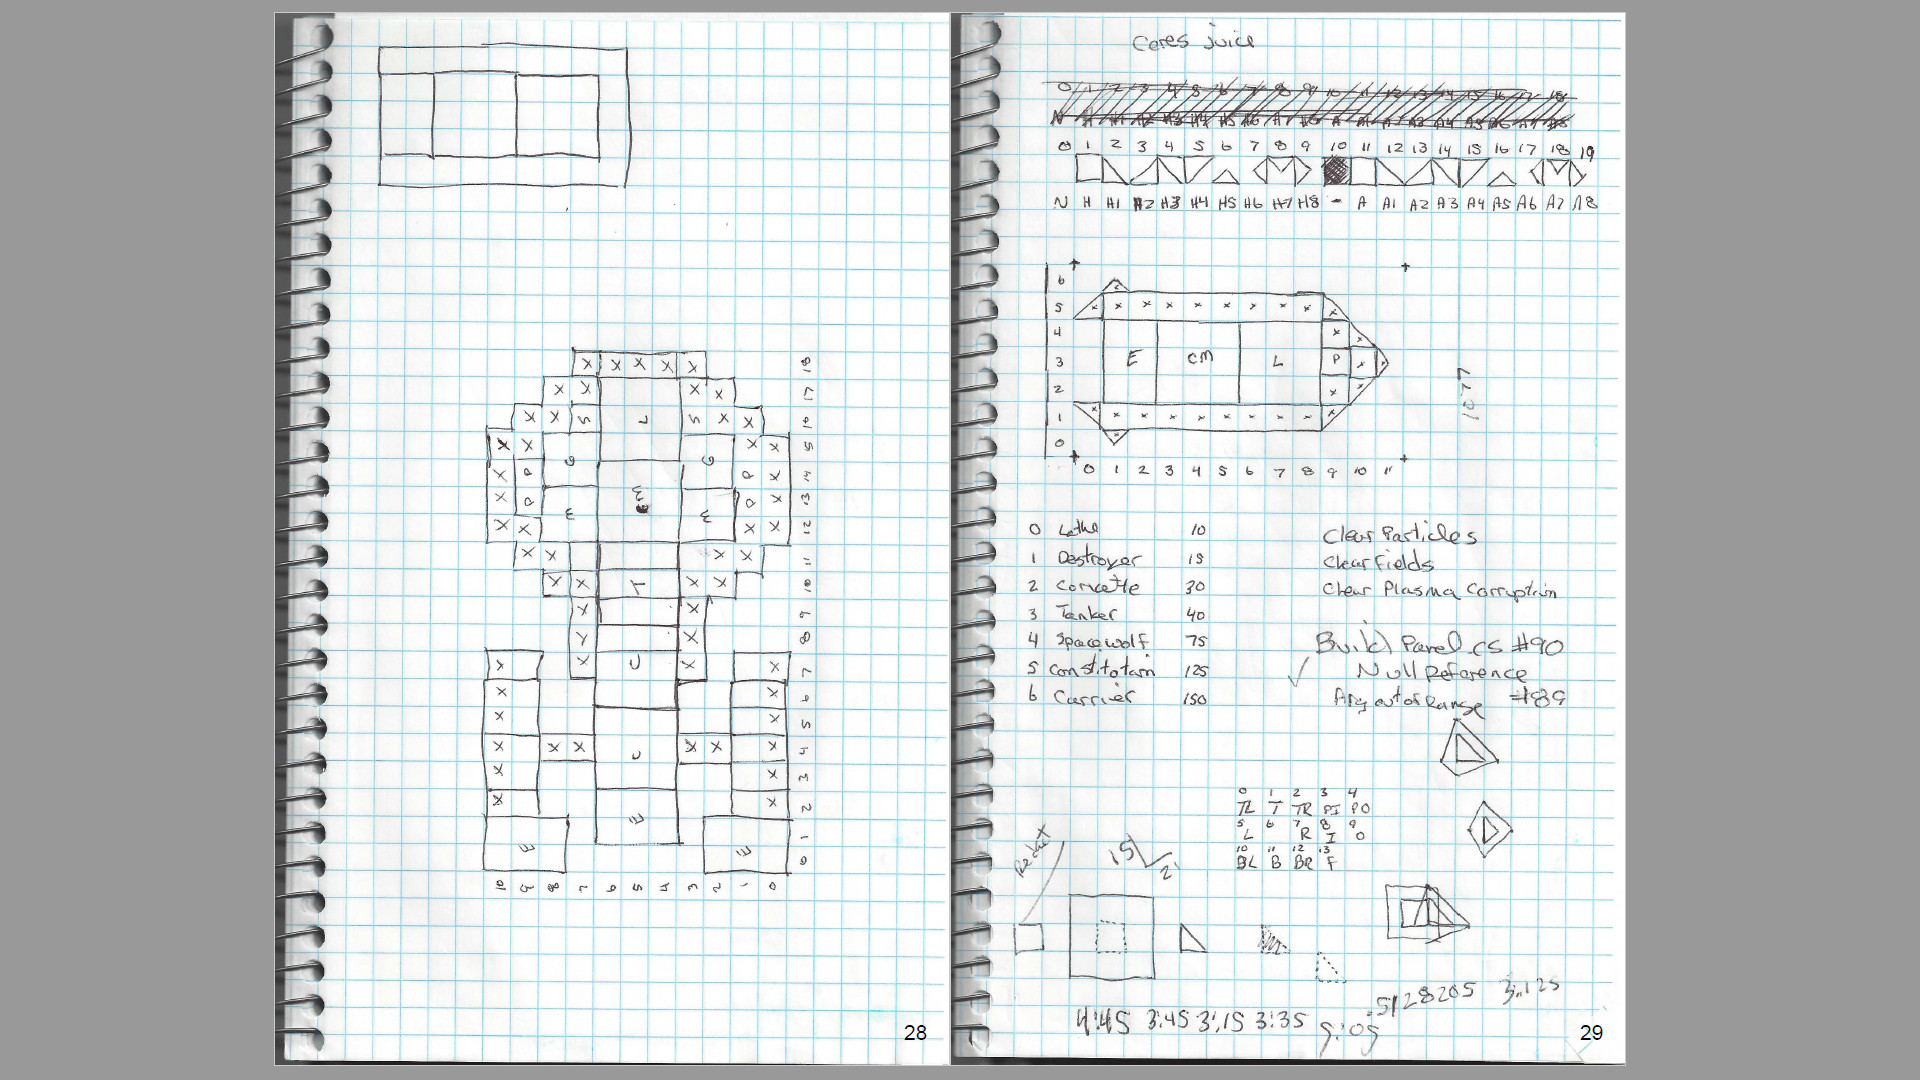 x x x x x
18
x x x x
17
x x S L S x x
16
x x G G x x
15
x D D x
14
x D E E E D x
13
x x x x
12
x x x x
11
x x L x x
10
x x
9
x x
8
x C x
x x
7
x x
6
x x
5
x x x C x x x
4
x x
3
x x
2
E E E
1
0
10 9 8 7 6 5 4 3 2 1 0
28
Ceres juice
0 1 2 3 4 5 6 7 8 9 10 11 12 13 14 15 16 17 18 19
N H H1 H2 H3 H4 H5 H6 H7 H8 - A A1 A2 A3 A4 A5 A6 A7 A8
6
5 x x x x x x x x x x
4 x x
3 E CM L P x
2 x x
1 x x x x x x x x x x
0
0 1 2 3 4 5 6 7 8 9 10 11
1077
0 Lathe 10
1 Destroyer 15
2 Corvette 30
3 Tanker 40
4 Spacewolf 75
5 Constitotain 125
6 Carrier 150
Clear Particles
Clear Fields
Clear Plasma Corruption
Build Panel.cs #90
✓ Null Reference
Arg out of Range #89
0 1 2 3 4
TL T TR PI PO
5 6 7 8 9
L R I O
10 11 12 13
BL B BR F
15 2
.5128205 3.125
4:45 3:45 3:15 3:35 5:05
29